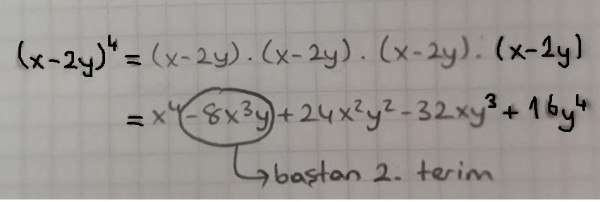 (x-2y)⁴ = (x-2y) . (x-2y) . (x-2y) . (x-2y)
= x⁴ - 8x³y + 24x²y² - 32xy³ + 16y⁴
baştan 2. terim